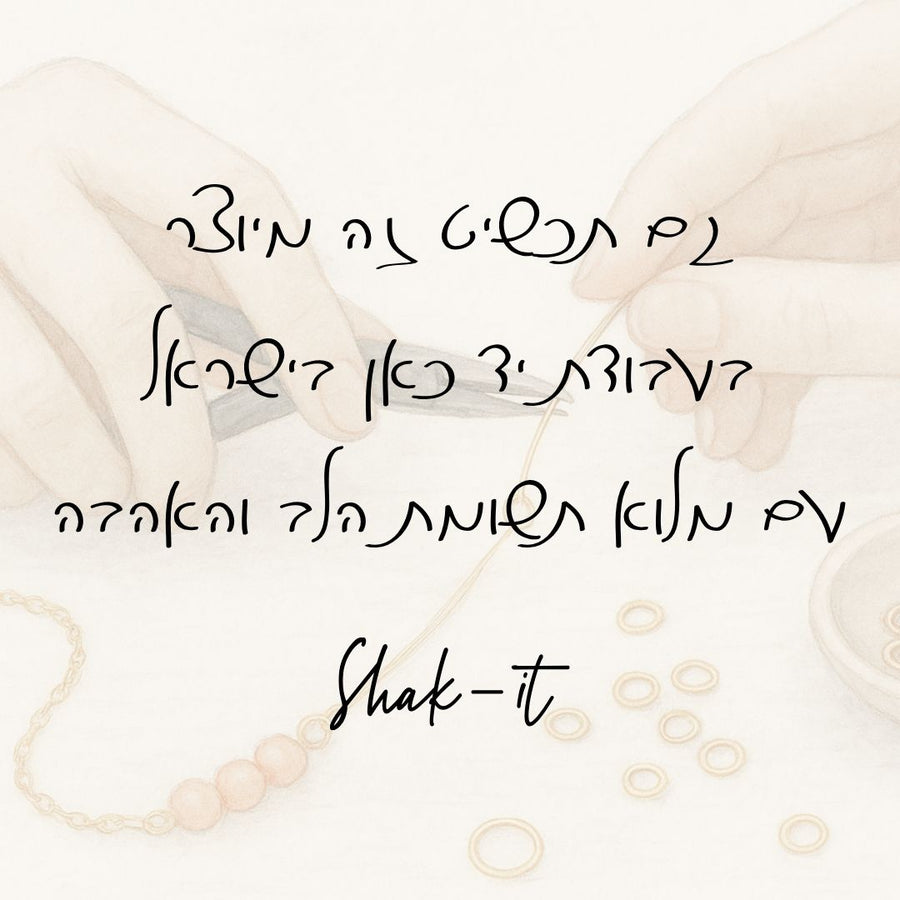 גם תכשיט זה מיוצר
בעבודת יד כאן בישראל
עם מלוא תשומת הלב והאהבה
Shak-it